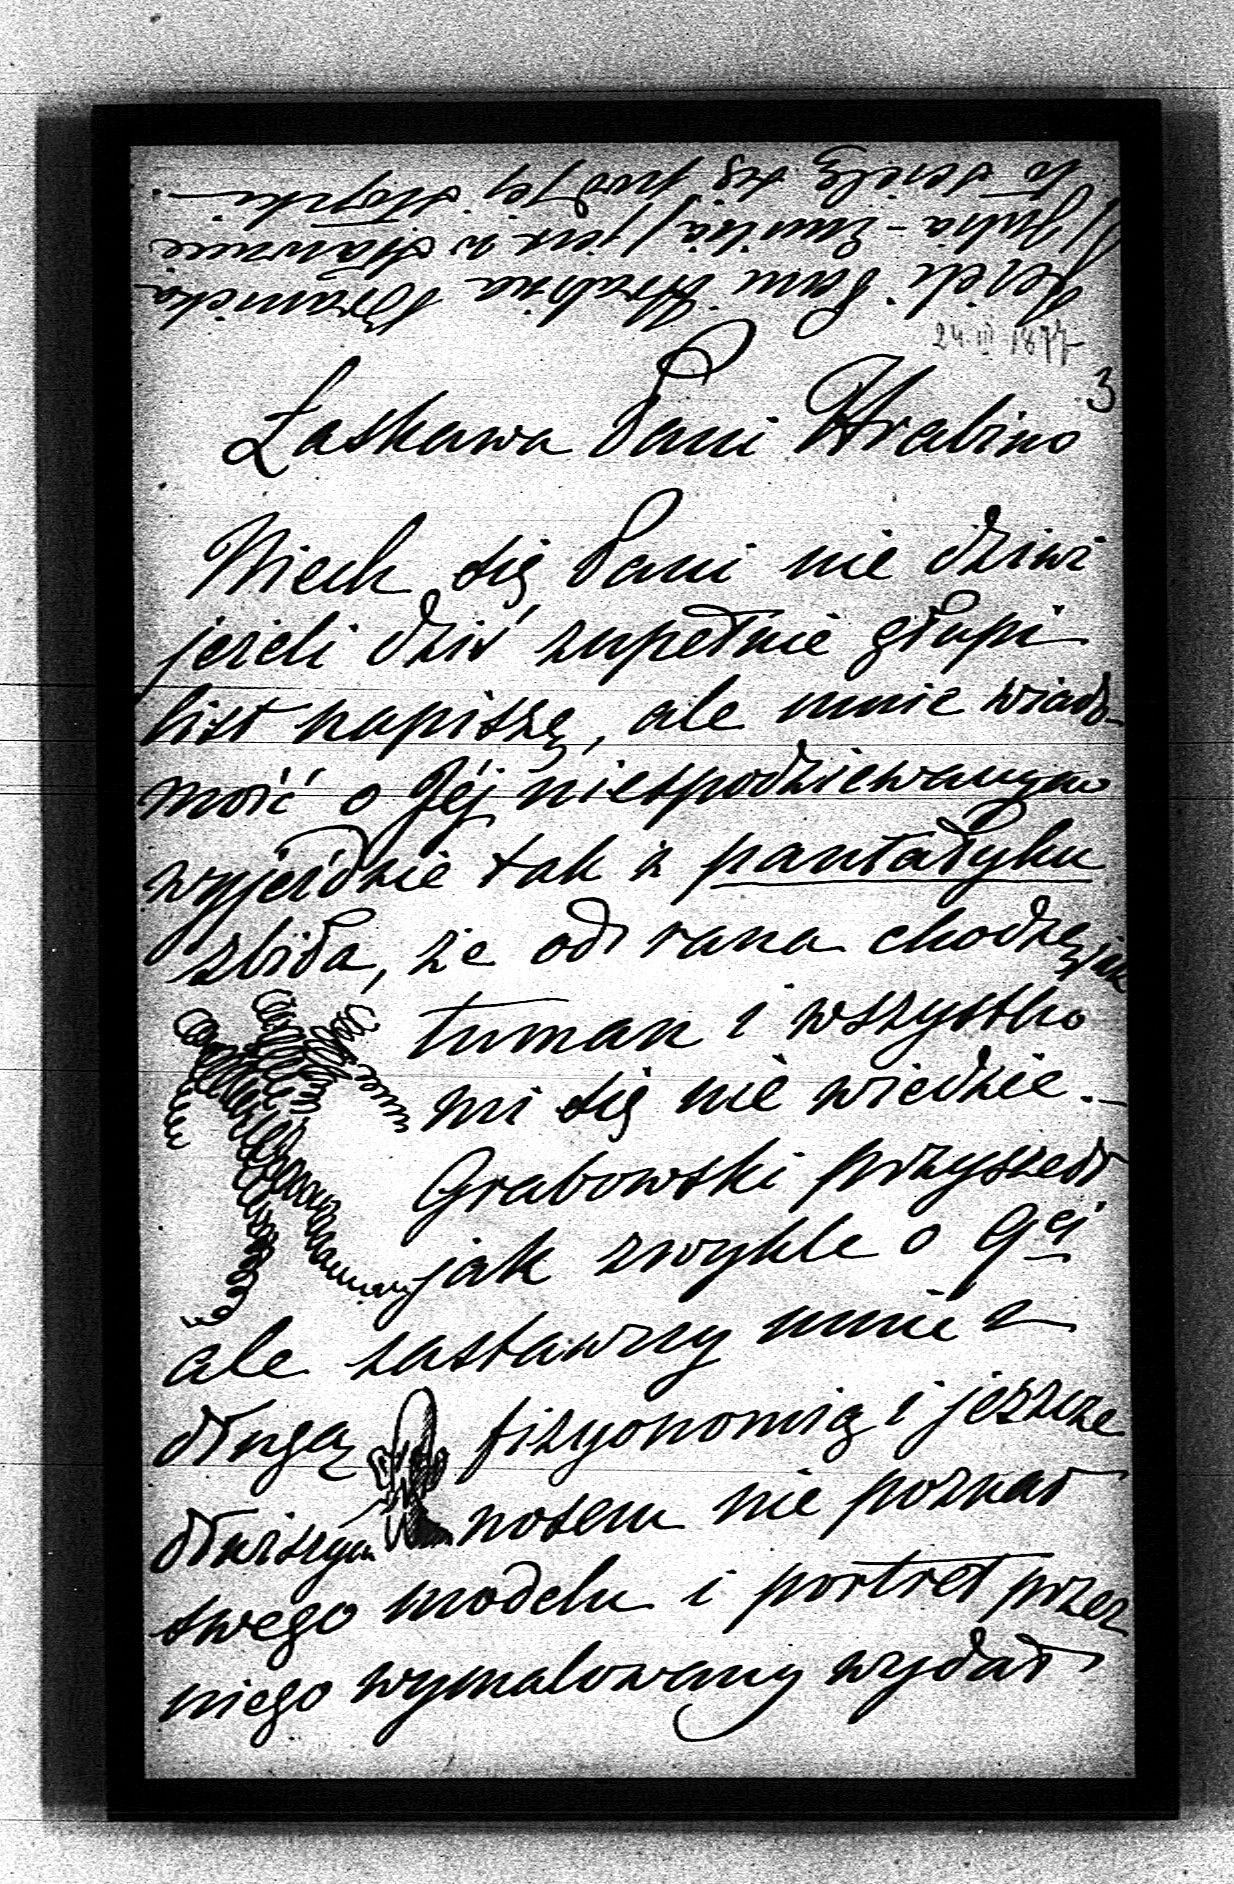 Jeżeli Pani Hrabina Branicka
(Julia-Emilia) jest w Stawnicie
to ścielę się pod Jej stopki —
24 III 1877
3
Łaskawa Pani Hrabino
Niech się Pani nie dziwi
jeżeli dziś zupełnie głupi
list napiszę, ale mnie wiado-
mość o Jéj niespodziewanym
wyjeździe tak z pantałyku
zbiła, że od rana chodzę jak
tuman i wszystko
mi się nie wiedzie.—
Grabowski przyszedł
jak zwykle o 9ej
ale zastawszy mnie z
długą fizyonomią i jeszcze
dłuższym nosem nie poznał
swego modelu i portret przez
niego wymalowany wydał